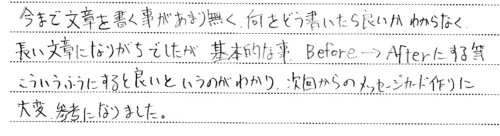 今まで文章を書く事があまり無く、何をどう書いたら良いかわからなく
長い文章になりがちでしたが 基本的な事 Before→Afterにする等
こういうふうにすると良いというのがわかり、次回からのメッセージカード作りに
大変、参考になりました。